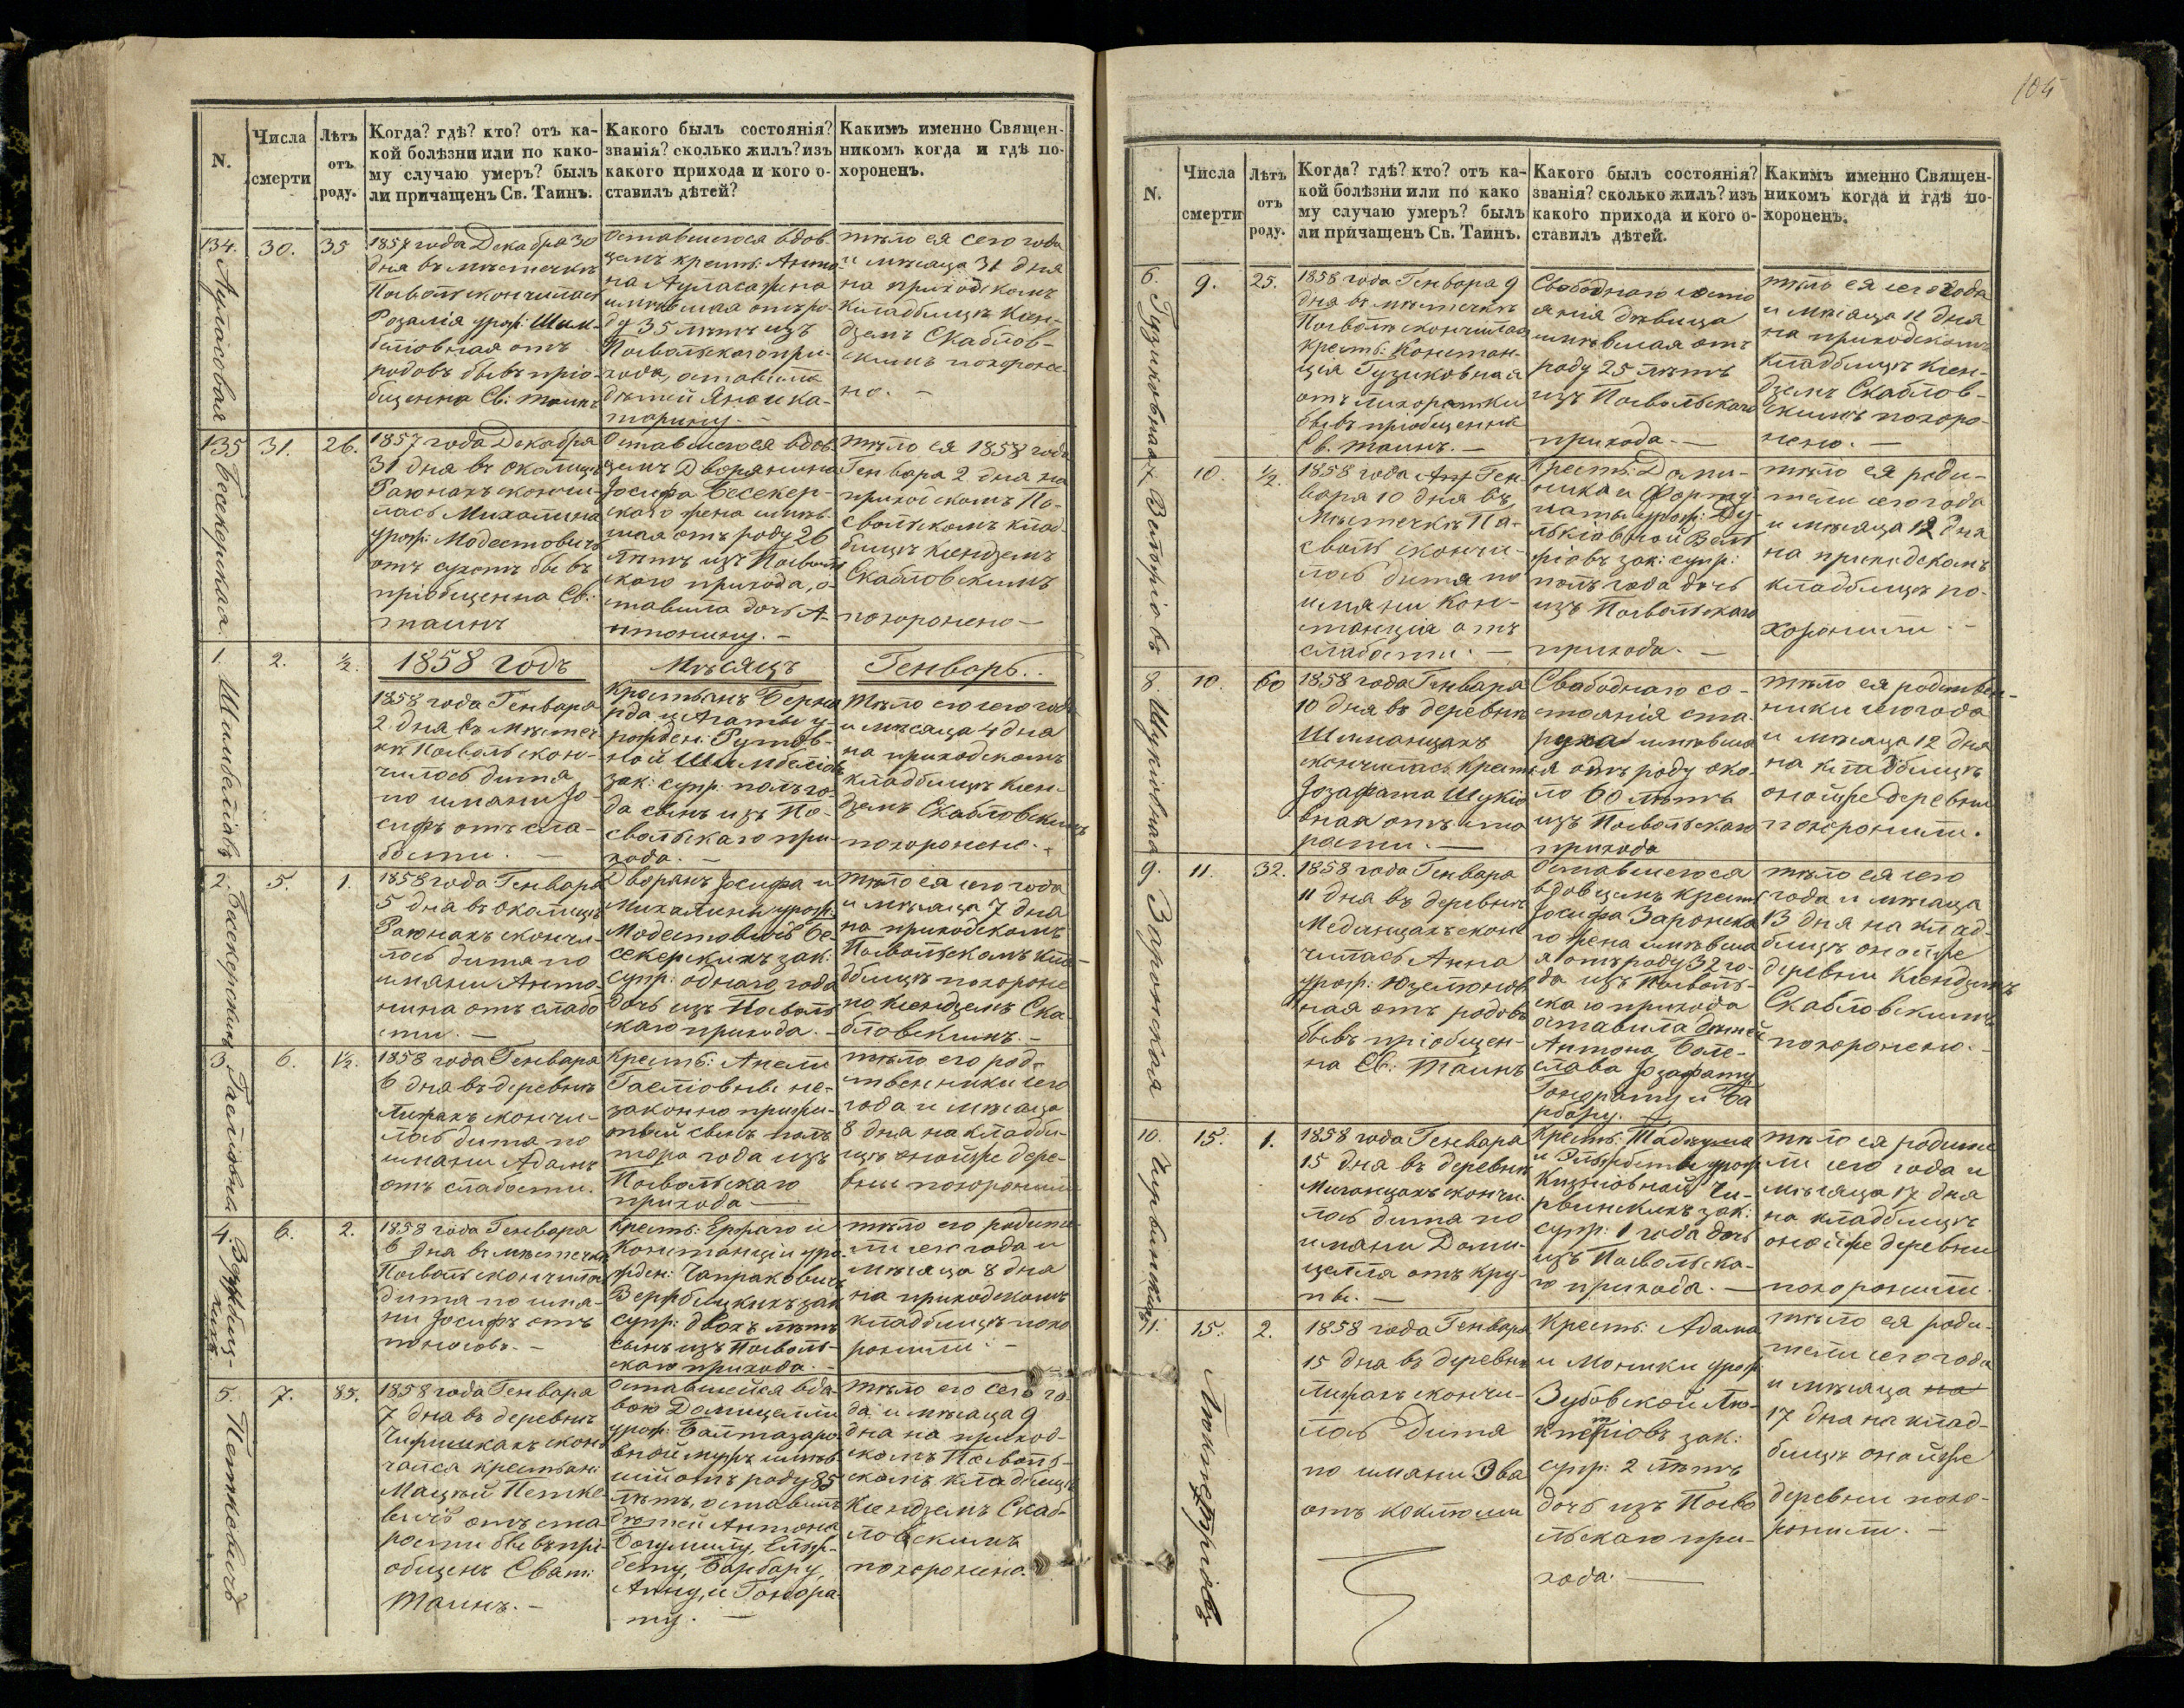 N.
Числа
смерти
Лѣтъ
отъ
роду.
Когда? гдѣ? кто? отъ ка-
кой болѣзни или по како-
му случаю умеръ? былъ
ли причащенъ Св. Таинъ.
Какого былъ состоянія?
званія? сколько жилъ? изъ
какого прихода и кого о-
ставилъ дѣтей?
Какимъ именно Священ-
никомъ когда и гдѣ по-
хороненъ.
134.
30.
35
1857 года Декабря 30
дня въ мѣстечкѣ
Посволѣ скончалась
Розалія урож: Шим-
отъ
родовъ бывъ пріо-
бщенна Св: таинъ
Оставшегося вдов-
цемъ крестъ: Анто-
на
имѣвшая отъ ро-
ду 35 лѣтъ изъ
Посвольскаго при-
хода, оставила
дѣтей Яна и Ка-
тарину. —
тѣло ея сего года
и мѣсяца 31 дня
на приходскомъ
кладбищѣ Ксен-
дземъ Скаблов-
скимъ похороне-
но. —
135
Бесекерская.
31.
26.
1857 года Декабря
31 дня въ околицѣ
Раюнахъ сконча-
лась Михалина
урож: Модестовичъ
отъ сухотъ бывъ
пріобщенна Св:
таинъ
Оставшегося вдов-
цемъ Дворянина
Іосифа Бесекер-
скаго жена имѣв-
шая отъ роду 26
лѣтъ изъ Посволь-
скаго прихода, о-
ставила дочь А-
нтонину. —
тѣло ея 1858 года
Генвара 2 дня на
приходскомъ По-
свольскомъ клад-
бищѣ Ксендземъ
Скабловскимъ
похоронено —
1858 годъ
Мѣсяцъ
Генварь..
1.
2.
½.
1858 года Генвара
2 дня въ мѣстеч-
кѣ Посволь скон-
чилось дитя
по имани Іо-
сифъ отъ сла-
бости. —
Крестьянъ Берна
рда и Агаты у-
рожден:
ной
зак: супр: полъго-
да сынъ изъ По-
свольскаго при-
хода. —
Тѣло его сего года
и мѣсяца 4 дня
на приходскомъ
кладбищѣ Ксен-
дземъ Скабловскимъ
похоронено. —
2.
Бесекерскихъ
5.
1.
1858 года Генвара
5 дня въ околицѣ
Раюнахъ скончи-
лось дитя по
имяни Анто-
нина отъ слабо
сти. —
Дворянъ Іосифа и
Михалины урож:
Модестовичъ Бе-
секерскихъ зак:
супр: одного года
дочь изъ Посволь
скаго прихода. —
тѣло ея сего года
и мѣсяца 7 дня
на приходскомъ
Посвольскомъ кла-
дбищѣ похороне
но Ксендземъ Ска-
бловскимъ. —
3.
6.
1½.
1858 года Генвара
6 дня въ деревнѣ
скончи-
лось дитя по
имани Адамъ
отъ слабости.
Крестъ: Анели
не-
законно прижи-
тый сынъ полъ
тора года изъ
Посвольскаго
прихода —
тѣло его род-
ственники сего
года и мѣсяца
8 дня на кладби-
щѣ онойже дере-
вни похоронили
4.
6.
2.
1858 года Генвара
6 дня въ мѣстечкѣ
Посволь скончилось
дитя по имя-
ни Іосифъ отъ
поносовъ. —
Крестъ: и
Констанціи уро-
жден:
зак
супр: двохъ лѣтъ
сынъ изъ Посволь-
скаго прихода. —
тѣло его родите-
ли сего года и
мѣсяца 8 дня
на приходскомъ
кладбищѣ похо
ронили. —
5.
Петкевичъ
7.
85.
1858 года Генвара
7 дня въ деревнѣ
скон-
чался крестьян:
Мацѣй Петке-
вичъ отъ ста-
рости бывъ прі-
общенъ Свят:
Таинъ. —
Оставшейся вдо-
вою Домицелли
урож: Балтазаро
вной мужъ имѣв-
шій отъ роду 85
лѣтъ, оставилъ
дѣтей Антона
Богумилу, Елиз-
бету, Барбару,
Анну, и Гонора-
ту. —
Тѣло его сего го-
да и мѣсяца 9
дня на приход-
скомъ Посволь-
скомъ кладбищѣ
Ксендземъ Скаб-
ловскимъ
похоронено.
104
N.
Числа
смерти
Лѣтъ
отъ
роду.
Когда? гдѣ? кто? отъ ка-
кой болѣзни или по како
му случаю умеръ? былъ
ли причащенъ Св. Таинъ.
Какого былъ состоянія?
званія? сколько жилъ? изъ
какого прихода и кого о-
ставилъ дѣтей.
Какимъ именно Священ-
никомъ когда и гдѣ по-
хороненъ.
6.
Гузиковная
9.
25.
1858 года Генвара 9
дня въ мѣстечкѣ
Посволѣ скончилась
крестъ: Констан-
ція Гузиковная
отъ лихоратки
бывъ пріобщенна
Св. таинъ. —
Свободнаго состо
янія дѣвица
имѣвшая отъ
роду 25 лѣтъ
изъ Посвольскаго
прихода. —
тѣло ея сего года
и мѣсяца 11 дня
на приходскомъ
кладбищѣ Ксен-
дземъ Скаблов-
скимъ похоро-
нено. —
10.
½.
1858 года Ген-
вара 10 дня въ
мѣстечкѣ По-
сволѣ скончи-
лось дитя по
имяни Кон-
станція отъ
слабости. —
Крестъ: Доми-
ника и Форту-
наты урож:
зак: супр:
полъ года дочь
изъ Посвольскаго
прихода. —
тѣло ея роди-
тели сего года
и мѣсяца 12 дня
на приходскомъ
кладбищѣ по-
хоронили —
8.
Шукіовная
10.
60
1858 года Генвара
10 дня въ деревнѣ
Шиманцахъ
скончилась крестъ
Іозафата Шукіо
вная отъ ста
рости. —
Свободнаго со-
стоянія ста-
руха имѣвша
я отъ роду око-
ло 60 лѣтъ
изъ Посвольскаго
прихода
тѣло ея родствен-
ники сего года
и мѣсяца 12 дня
на кладбищѣ
онойже деревни
похоронили.
9.
Заронская
11.
32.
1858 года Генвара
11 дня въ деревнѣ
скон
чилась Анна
урож:
ная отъ родовъ
бывъ пріобщен-
на Св: Таинъ
Оставшегося
вдовцемъ крестъ
Іосифа Заронска
го жена имѣвша
я отъ роду 32 го-
да изъ Посволь-
скаго прихода
оставила дѣтей
Антона Боле-
слава Іозафату
Гонорату и Ба
рбару. —
тѣло ея сего
года и мѣсяца
13 дня на клад-
бищѣ онойже
деревни Ксендземъ
Скабловскимъ
похоронено. —
10.
15.
1.
1858 года Генвара
15 дня въ деревнѣ
скончи-
лось дитя по
имани Доми-
целля отъ кру-
пы. —
Крестъ: Тадеуша
и Эльжбеты урож
зак:
супр: 1 года дочь
изъ Посвольска-
го прихода. —
тѣло ея родите
ли сего года и
мѣсяца 17 дня
на кладбищѣ
онойже деревни
похоронили.
11.
15.
2.
1858 года Генвара
15 дня въ деревнѣ
скончи-
лось Дитя
по имани Эва
отъ коклюши
Крестъ: Адама
и Моники урож:
Зубовской
зак:
супр: 2 лѣтъ
дочь изъ Посво
льскаго при-
хода. —
тѣло ея роди-
тели сего года
и мѣсяца на
17 дня на клад-
бищѣ онойже
деревни похо-
ронили. —